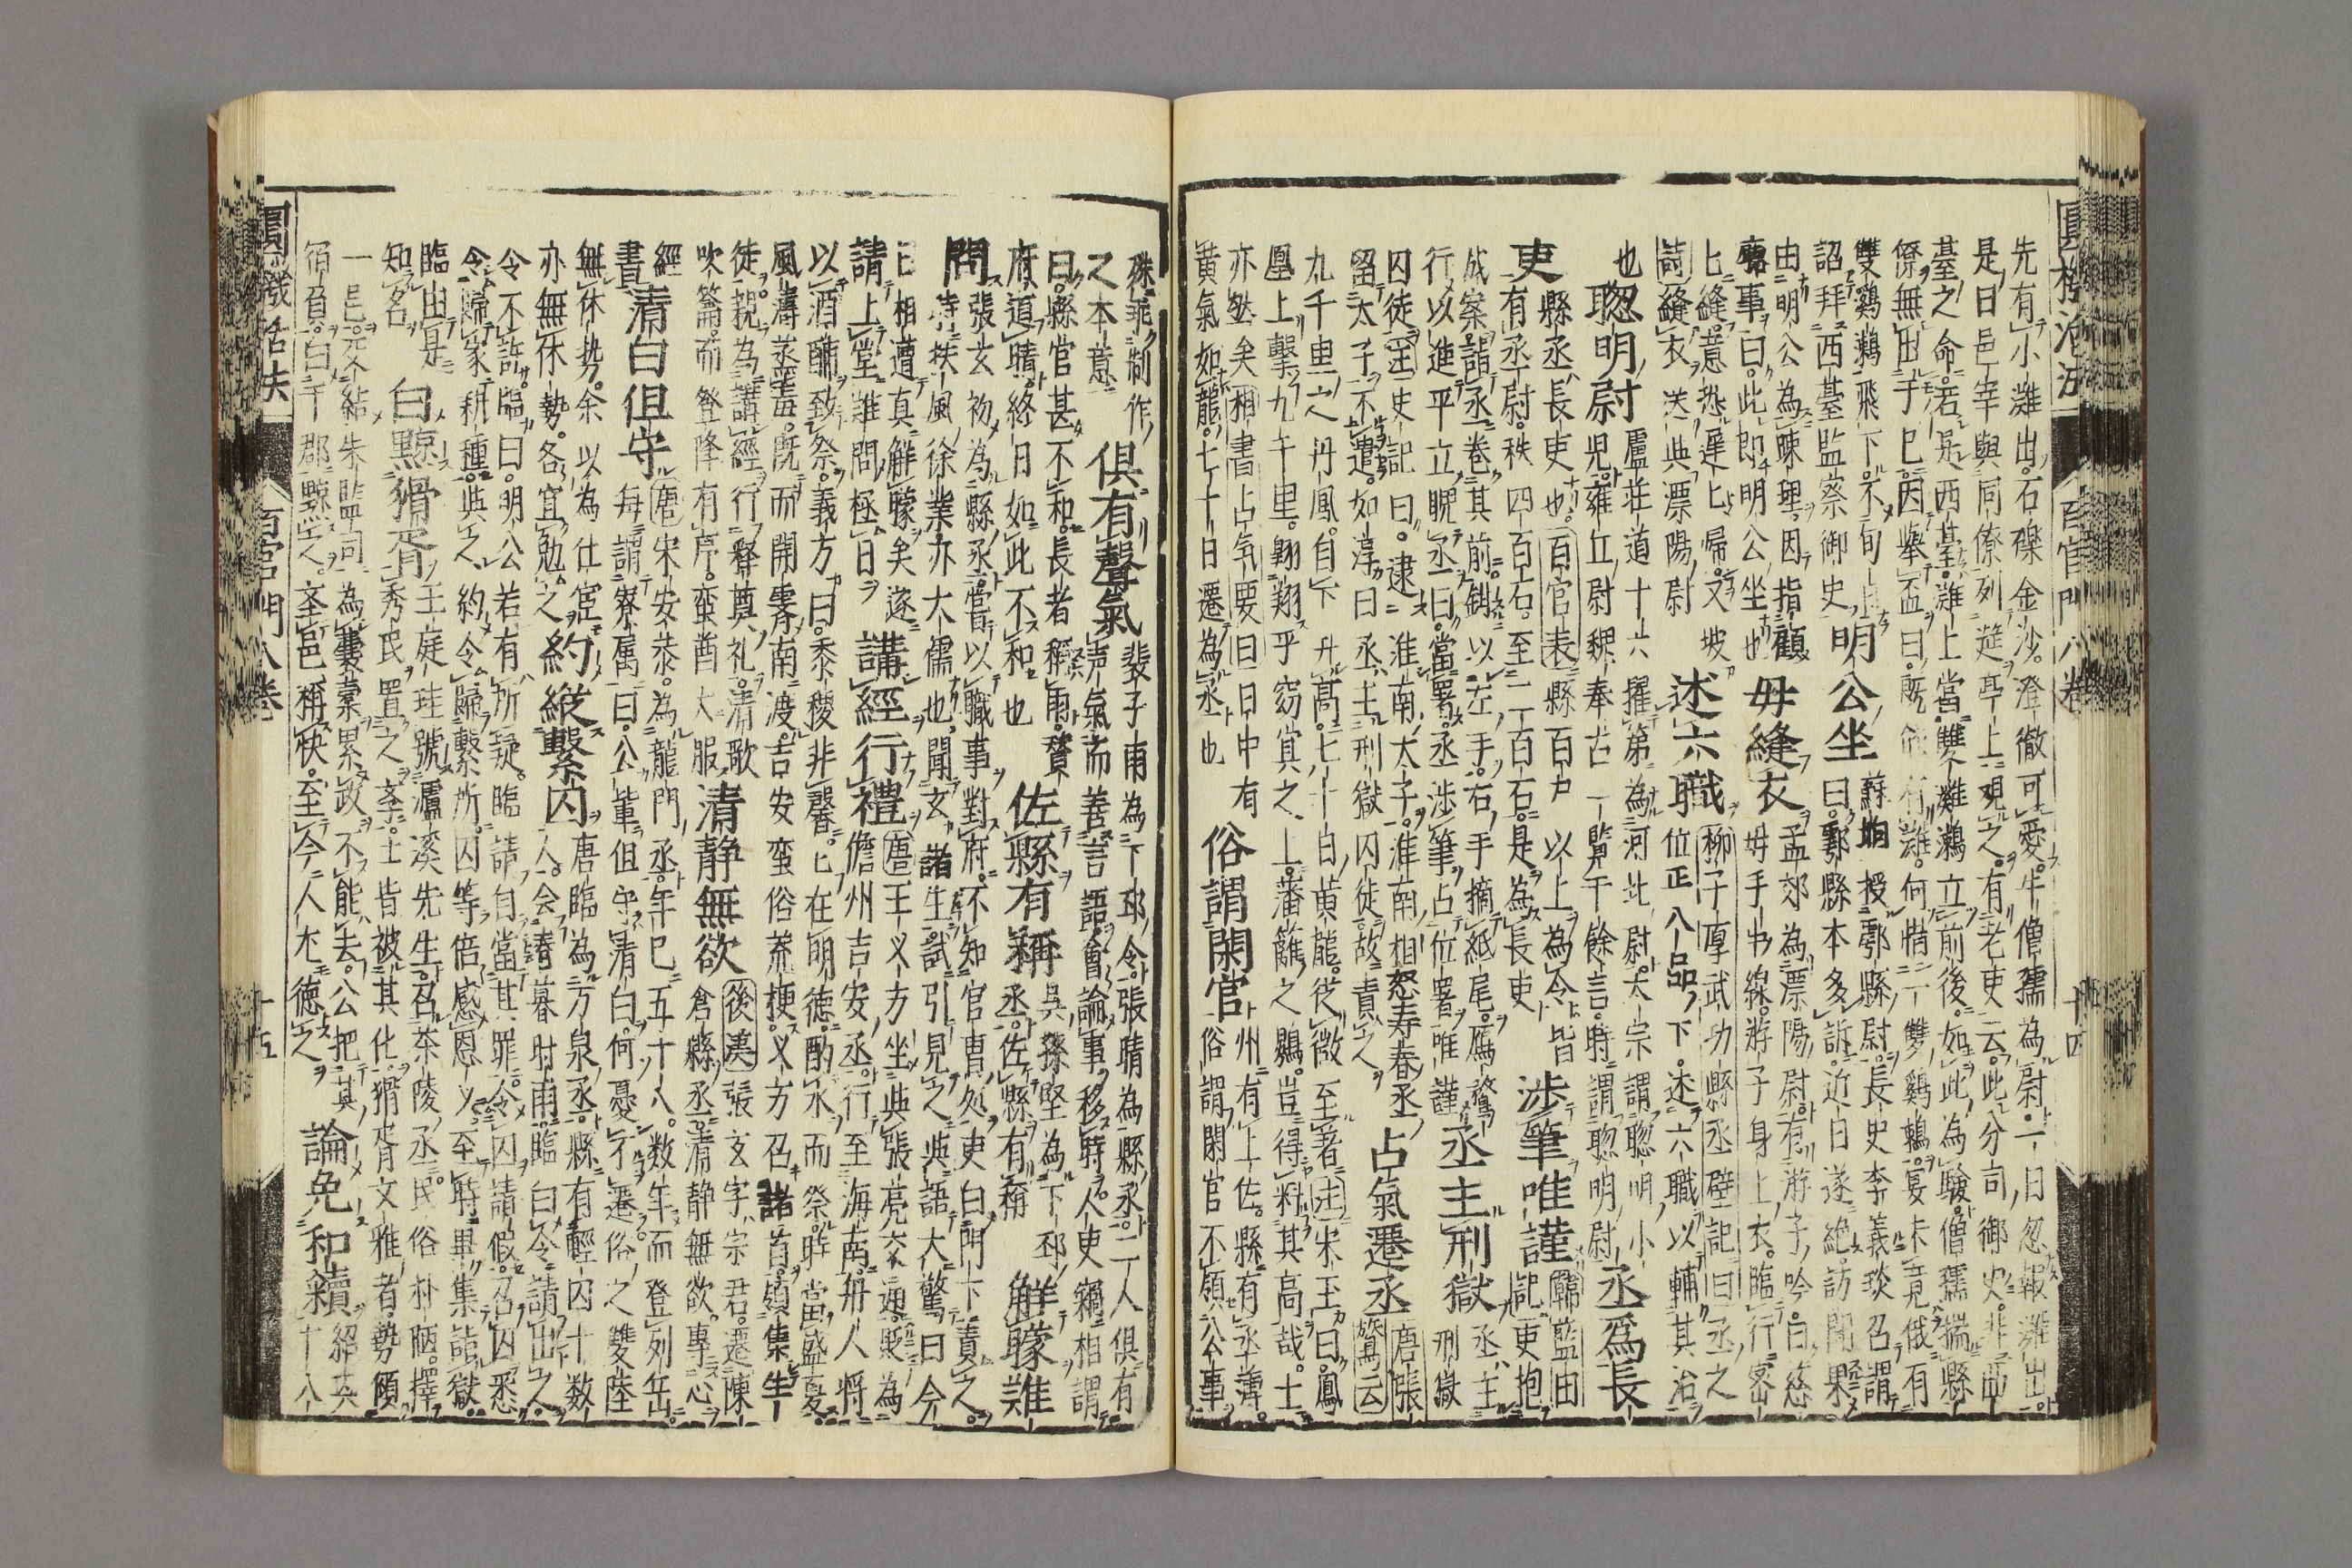 先有小灘出石礫金沙澄徹可愛牛僧孺為尉一日忽報灘出
是日邑宰與同僚列筵亭上觀之有老吏云此分司御史非西
臺之命若是西臺灘上當雙鸂鶒立前後如此為驗僧孺揣縣
僚無出于已因舉盃曰既能有灘何惜一雙鸂鶒宴未竟俄有
雙鸂鶒飛下不旬日
詔拜西臺監察御史
明公坐
蘇㬇授鄠縣尉長史李義琰召謂
曰鄠縣本多訴近日遂絶訪問果
由明公為陳理因指顧
廳事曰此即明公坐也
毋縫衣
孟郊為溧陽尉有游子吟曰慈
毋手中線游子身上衣臨行密
匕縫意恐遲匕歸又坡
詩縫衣送與溧陽尉
述六職
柳子厚武功縣丞壁記曰丞之
位正八品下述六職以輔其治
也
聦明尉
盧莊道十六擢第為河北尉太宗謂聦明小
兒雍丘尉魏奉古一覽千餘言時謂聦明尉
丞爲長
吏
縣丞長吏也百官表縣百戶以上為令皆
有丞尉秩四百石至二百石是為長吏
涉筆唯謹
韓藍田
記吏抱
成案詣丞卷其前鉗以左手右手摘紙尾鴈鶩
行以進平立睨丞曰當署丞涉筆占位署唯謹
丞主刑獄
丞主
刑獄
囚徒王吏記曰逮淮南太子淮南相怒壽春丞
留太子不遣如淳曰丞主刑獄囚徒故責之
占氣遷丞
唐張
鷟云
九千里之丹鳳自下升高七十日黄龍從微至著注宋玉曰鳳
凰上擊九千里翱翔乎窈冥之上藩籬之鷃豈得料其高哉士
亦然矣相書占氣要曰日中有
黄氣如龍七十日遷為丞也
俗謂閑官
州有上佐縣有丞簿
俗謂閑官不領公事
殊乖制作
之本意
俱有聲氣
裴子甫為下邳令張晴為縣丞二人俱有
声氣而善言語會論事移時人吏竊相謂
曰縣官甚不和長者稱雨贊
府道晴終日如此不和也
佐縣有稱
吳孫堅為下邳
丞佐縣有稱
觧朦難
問
張玄初為縣丞嘗以職事對府不知官曹処吏白門下責之
時扶風徐業亦大儒也聞玄諸生試引見之與語大驚曰今
日相遭真觧朦矣遂
請上堂難問極日
講經行禮
唐王义方坐與張亮交通貶為
儋州吉安丞行至海南舟人將
以酒酺致祭義方曰黍稷非馨匕在明德酌水而祭時當盛夏
風濤蒸毒既而開霽南渡吉安蛮俗荒梗义方召諸首領集生
徒親為講經行釋奠礼清歌
吹籥而登降有序蛮酋大服
清静無欲
後漢張玄字宗君遷陳
倉縣丞清静無欲專心
經
書
清白但守
唐宋安恭為龍門丞年已五十八数年而登列岳
每謂寮属曰公輩但守清白何憂不遷俗之雙陸
無休勢余以為仕宦
亦無休勢各宜勉之
約縱繫囚
唐臨為万泉丞縣有輕囚十数
人会春暮时雨臨白令請出之
令不許臨曰明公若有所疑臨請自當其罪令因請假召囚悉
令歸家耕種與之約令歸繫所囚等倍感恩义至時畢集詣獄
臨由是
知名
白黥猾胥
王庭珪號瀘溪先生召茶陵丞民俗朴陋擇
秀民置之夲士皆被其化猾胥文雅者勢傾
一邑交結朱監司為囊橐累政不能去公把其
宿負白于郡黥之夲邑稱快至今人尤德之
論免和續
紹共
十八
圓機活法 百官門八卷 十四
圓機活法 百官門八卷 十五